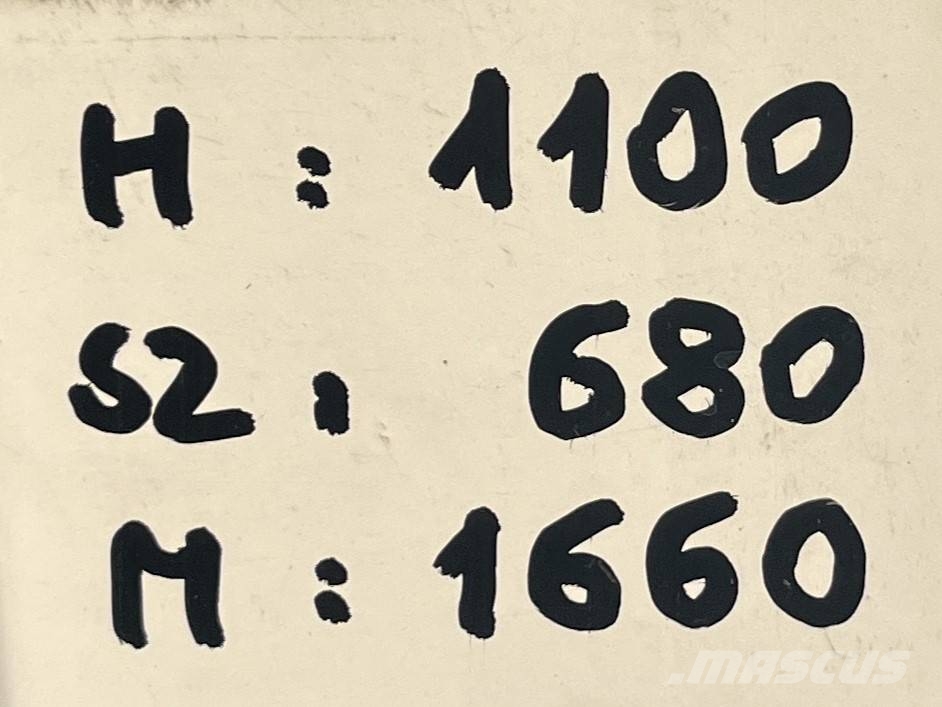 H: 1100
SZ: 680
M: 1660
.mascus